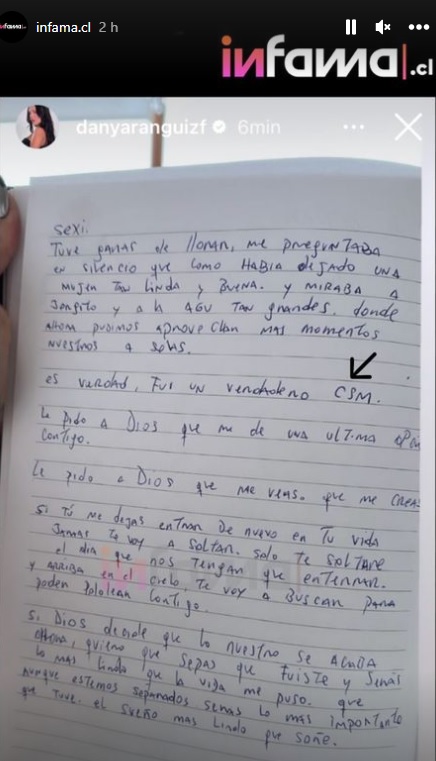 infama.cl 2 h
infama.cl
danyaranguizf 6min
sexi.
Tuve ganas de llorar, me preguntaba
en silencio que como había dejado una
mujer tan linda y buena. y miraba a
Jorgito y a la Agu tan grandes. donde
ahora pudimos aprovechar mas momentos
nuestros a solas.
es verdad, fui un verdadero CSM.
Le pido a Dios que me de una ultima
contigo.
Le pido a Dios que me veas. que me creas
si tú me dejas entrar de nuevo en tu vida
Jamas te voy a soltar. solo te soltare
el dia que nos tengan que enterrar.
y arriba en el cielo, te voy a buscar para
poder pololear contigo.
si Dios decide que lo nuestro se acaba
ahora, quiero que sepas que fuiste y serás
lo mas lindo que la vida me puso. que
aunque estemos separados seras lo mas importante
que tuve. el sueño mas lindo que soñe.
infama.cl